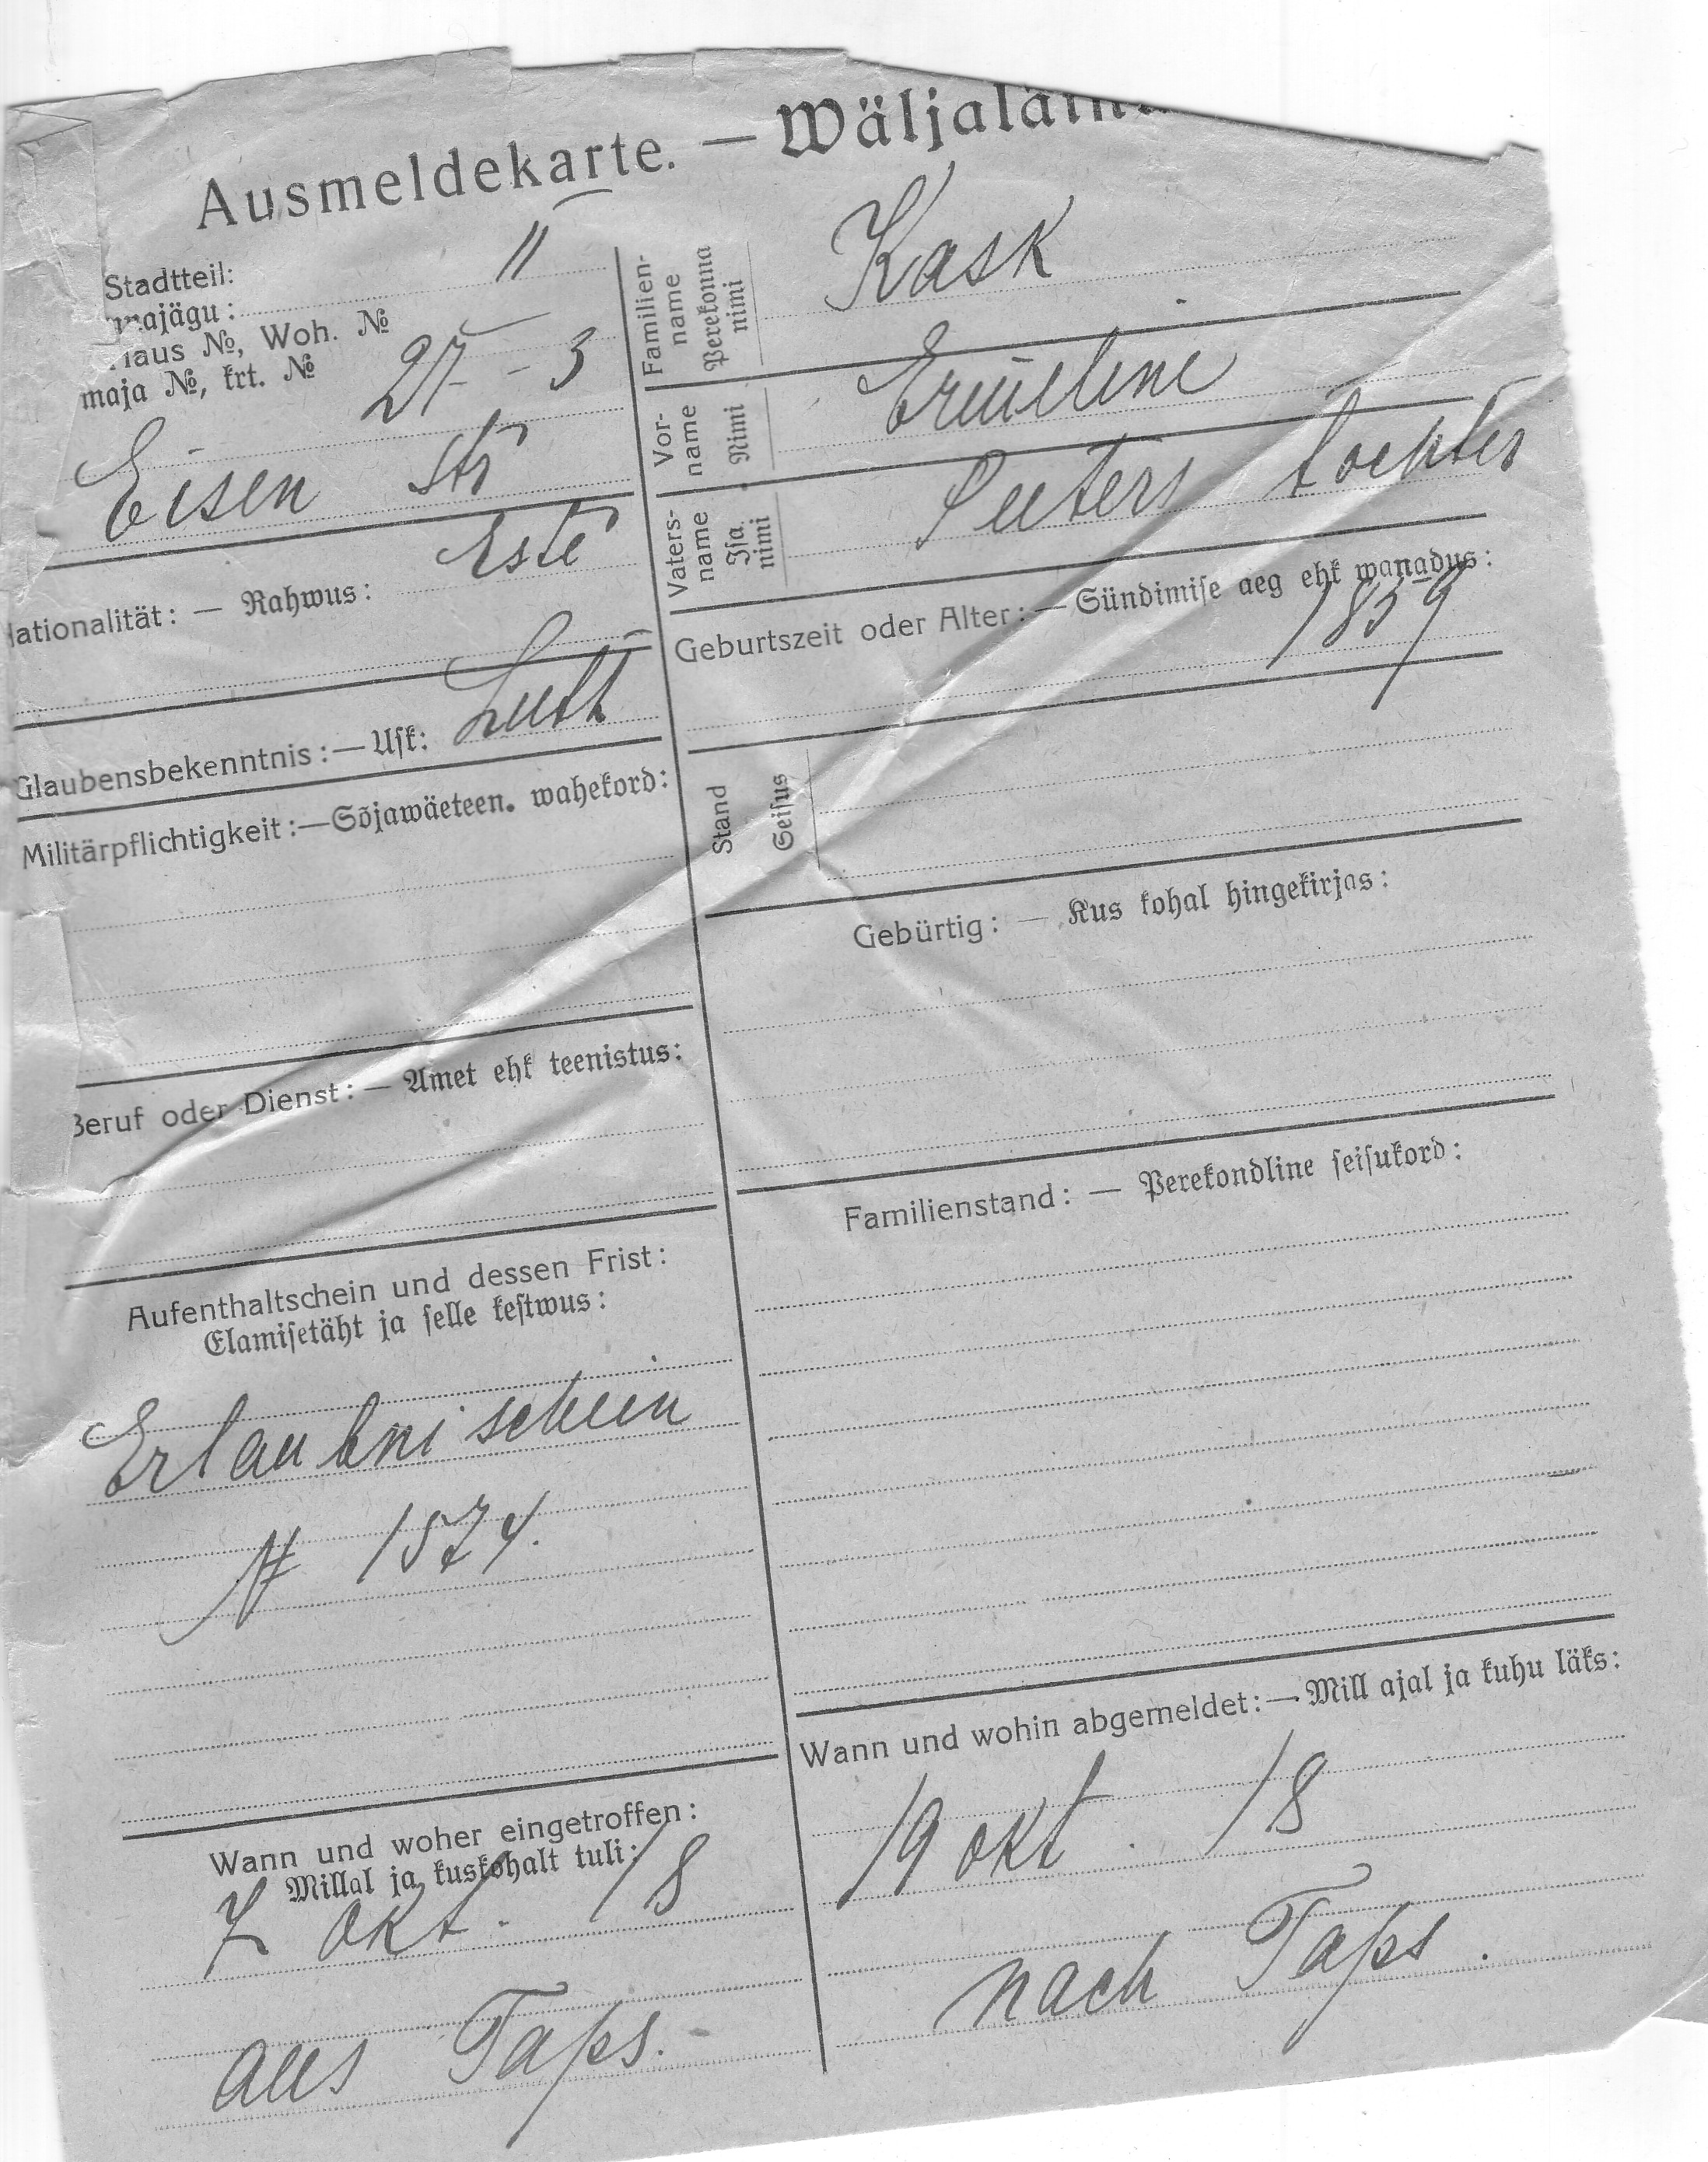 Ausmeldekarte. — Wäljaläinu
Stadtteil:
majägu: II
Haus №, Woh. №
maja №, krt. № 27 - 3
Eisen Str
Nationalität: — Rahwus: Este
Glaubensbekenntnis: — Usk: Luth
Militärpflichtigkeit: — Sõjawäeteen. wahekord:
Beruf oder Dienst: — Amet ehk teenistus:
Aufenthaltschein und dessen Frist:
Elamisetäht ja selle kestwus:
Erlaubnischein
N 1574.
Wann und woher eingetroffen:
Millal ja kuskohalt tuli:
7 Okt. 18
aus Taps.
Familien-
name
Perekonna
nimi
Kask
Vor-
name
Nimi
Ermeline
Vaters-
name
Isa
nimi
Peeters tochter
Geburtszeit oder Alter: — Sündimise aeg ehk wanadus:
1859
Stand
Seisus
Gebürtig: — Kus kohal hingekirjas:
Familienstand: — Perekondline seisukord:
Wann und wohin abgemeldet: — Mill ajal ja kuhu läks:
19 okt. 18
nach Taps.